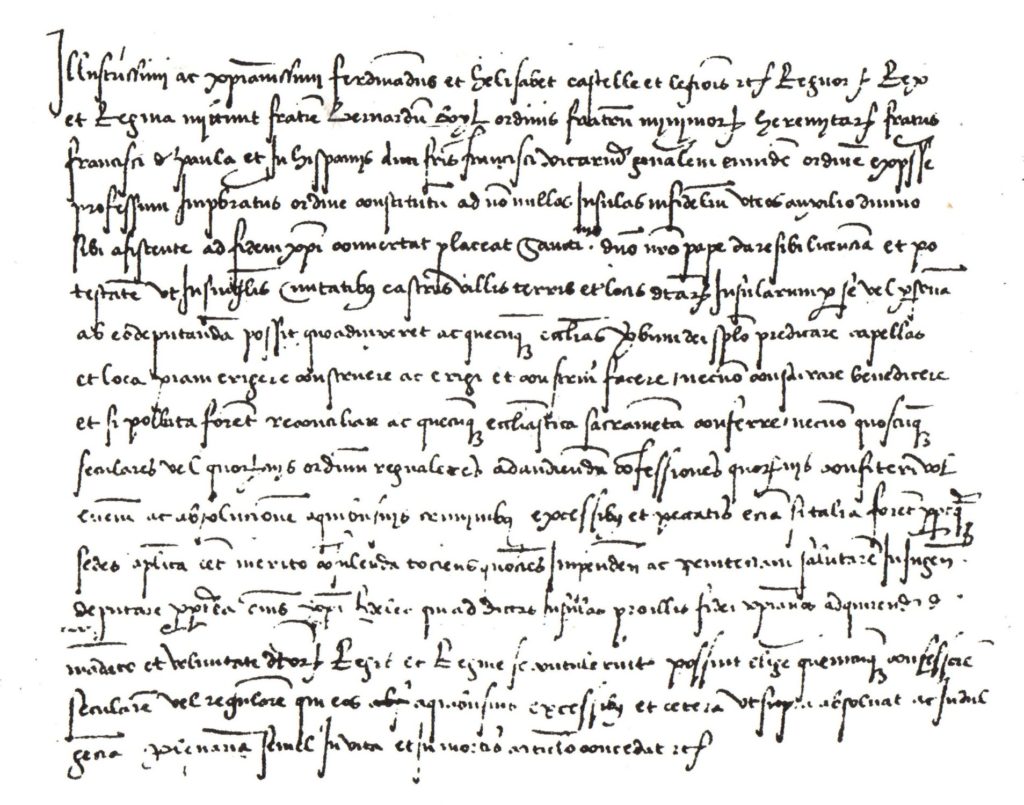 Illustrissimi ac xpianissimi ferdinandus et helisabet castelle et legionis rc Regnor Rex
et Regina mittunt fratre Bernardu Boyl ordinis fratru minimor heremitar fratris
francisci de paula et in hispaniis dicti fris francisci vicariu gnalem eiusde ordine expsse
professum Impbratus ordine constitutu ad no nullas Insulas infideliu ut eos auxilio divino
sibi asistente ad fidem xpi convertat placeat Sancti.mo dno nro pape dare sibi licencia et po
testate ut In singlis Civitatibus castris villis terris et locis dtar Insularum p se vel psona
ab eo deputanda possit quoad viveret ac quecuq ecclias vbum dei pplo predicare capellas
et loca piam erigere construere ac erigi et construi facere necno consecrare benedicere
et si polluta foret reconciliare ac quecuq ecclesiastica sacrameta conferre necno quoscuq
seculares vel quorumvis ordinu regulares ad audienda cofessiones quorumvis confiteri vole
ciem ac absolucione a quibusvis criminibus excessibus et peccatis ecia si talia foret ppt q
sedes aplica et merito coleda tociens quocies Impenden ac penitencia salutare Iniungen.
deputare pptea cuius xpi fideles qui ad dictas Insulas pro illis fidei xpiane adquirendis
madato et voluntate dtor Regis et Regine se cotulerint possint elige quemcuq confessore
seculare vel regulare qui eos a quibusvis excessibus et cetera ut supra absolvat ac Indul
gecia plenaria semel In vita et In mortis articulo concedat rc